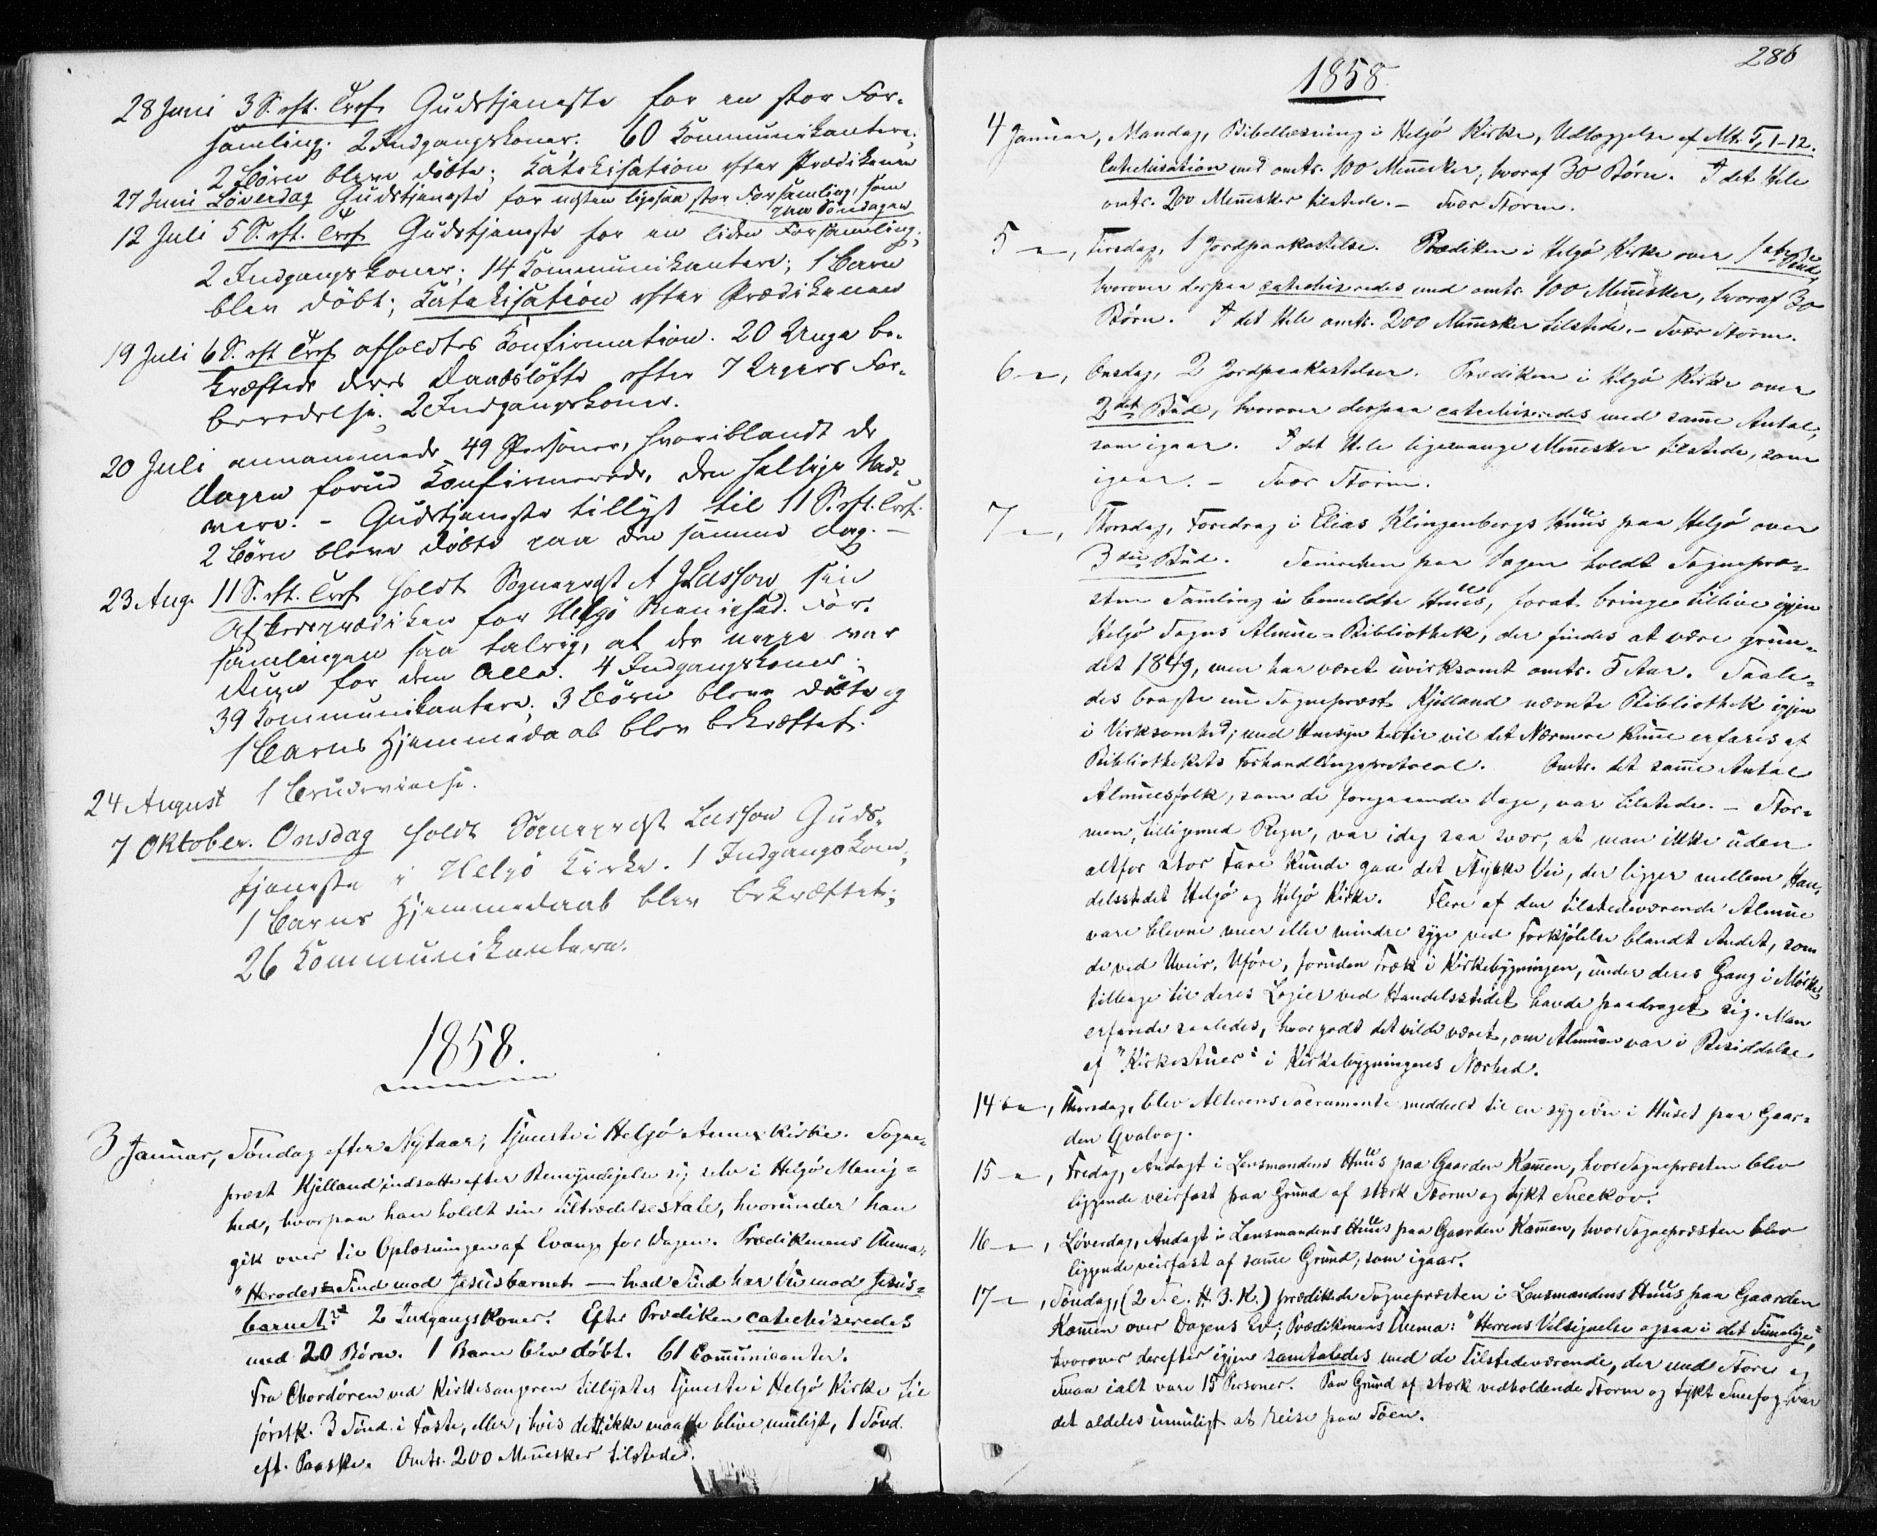 28 Juni 3 S. eft. Tref. Gudstjeneste for en stor For-
samling. 2 Indgangskoner. 60 Kommunikantere;
2 Børn bleve døbte; Katekisation efter Prædikenen
27 Juni Löverdag Gudstjeneste for næsten ligesaa stor Forsamling, som
paa Söndagen
12 Juli 5 S. eft. Tref. Gudstjeneste for en liden Forsamling;
2 Indgangskoner; 14 Kommunikantere; 1 Barn
blev døbt; Katekisation efter Prædikenen
19 Juli 6 S. eft Tref afholdtes Konfirmation. 20 Unge be-
kræftede deres Daabsløfte efter 7 Ugers For-
beredelse. 2 Indgangskoner.
20 Juli annammede 49 Personer, hvoriblandt de
Dagen forud Konfirmerede, den hellige Nad-
vere. - Gudstjeneste tillyst til 11 S. eft. Tref.
2 Børn bleve døbte paa den samme Dag. -
23 Aug. 11 S. eft. Tref holdt Sognepræst A J Lassow sin
Afskedsprædiken for Helgö Menighed. For-
samlingen saa talrig, at der neppe var
Rum for dem Alle. 4 Indgangskoner;
39 Kommunikantere; 3 Børn bleve døbte og
1 Barns Hjemmedaab blev bekræftet.
24 August 1 Brudevielse.
7 Oktober. Onsdag holdt Sognepræst Lassow Guds-
tjeneste i Helgö Kirke. 1 Indgangskone;
1 Barns Hjemmedaab blev bekræftet;
26 Kommunikantere.
1858.
3 Januar, Söndag efter Nytaar, Tjeneste i Helgö Annexkirke. Sogne-
præst Kjelland indsatte efter Bemyndigelse sig selv i Helgö Menig-
hed, hvorpaa han holdt sin Tiltrædelsestale, hvorunder han
gik over til Oplæsningen af Evang. for Dagen. Prædikenens Thema:
"Herodes's Sind mod Jesusbarnet — hvad Sind har Du mod Jesus-
barnet?" 2 Indgangskoner. Efter Prædiken catechiseredes
med 20 Börn. 1 Barn blev döbt. 61 Communicanter.
Fra Chordören ved Kirkesangeren tillystes Tjeneste i Helgö Kirke til
förstk. 3 Sönd. i Faste, eller, hvis det ikke maatte blive muligt, 1 Sönd.
eft. Paaske. Omtr. 200 Mennesker tilstede.
286
1858.
4 Januar, Mandag, Bibellæsning i Helgö Kirke, Udlæggelse af Mt. 5, 1-12.
Catechisation med omtr. 100 Mennesker, hvoraf 30 Börn. I det Hele
omtr. 200 Mennesker tilstede. - Svær Storm.
5 -, Tirsdag, 1 Jordpaakastelse. Prædiken i Helgö Kirke over 1ste Bud,
hvorover derpaa catechiseredes med omtr. 100 Mennesker, hvoraf 30
Börn. I det Hele omtr. 200 Mennesker tilstede. - Svær Storm.
6 -, Onsdag, 2 Jordpaakastelser. Prædiken i Helgö Kirke over
2det Bud, hvorover derpaa catechiseredes med samme Antal,
som igaar. I det Hele ligesaamange Mennesker tilstede, som
igaar. - Svær Storm.
7 -, Thorsdag, Foredrag i Elias Klingenbergs Huus paa Helgö over
3die Bud. Senere hen paa Dagen holdt Sognepræ-
sten Samling i bemeldte Huus, forat bringe tillive igjen
Helgö Sogns Almue-Bibliothek, der findes at være grun-
det 1849, men har været uvirksomt omtr. 5 Aar. Saale-
des bragte nu Sognepræst Kjelland nævnte Bibliothek igjen
i Virksomhed; med Hensyn hertil vil det Nærmere kunne erfares af
Bibliothekets Forhandlingsprotocol. Omtr. det samme Antal
Almuesfolk, som de foregaaende Dage, var tilstede. - Stor-
men, tilligemed Regn, var idag saa svær, at man ikke uden
altfor stor Fare kunde gaae det Stykke Vei, der ligger mellem Han-
delsstedet Helgö og Helgö Kirke. Flere af den tilstedeværende Almue
vare blevne meer eller mindre syge ved Forkjölelse blandt Andet, som
de ved Uveir, Uföre, foruden Træk i Kirkebygningen, under deres Gang i Mörke
tilbage til deres Logier ved Handelsstedet havde paadraget sig. Man
erfarede saaledes, hvor godt det vilde været, om Almuen var i Besiddelse
af "Kirkestuer" i Kirkebygningens Nærhed.
14 -, Thorsdag, blev Alterens Sacramente meddeelt til en syg i Huset paa Gaar-
den Qvalvog.
15 -, Fredag, Andagt i Lensmandens Huus paa Gaarden Kammen, hvor Sognepræsten blev
liggende veirfast paa Grund af stærk Storm og tykt Sneekov.
16 -, Löverdag, Andagt i Lensmandens Huus paa Gaarden Kammen, hvor Sognepræsten blev
liggende veirfast af samme Grund, som igaar.
17 -, Söndag, (2 S. e. H. 3. K.) prædikede Sognepræsten i Lensmandens Huus paa Gaarden
Kammen over Dagens Ev.; Prædikenens Thema: "Herrens Velsignelse ogsaa i det Timelige,"
hvorover derefter igjen samtaledes med de Tilstedeværende, der med Store og
Smaa ialt vare 15 Personer. Paa Grund af stærk vedholdende Storm og tykt Sneefog var
det aldeles umuligt at reise paa Söen.